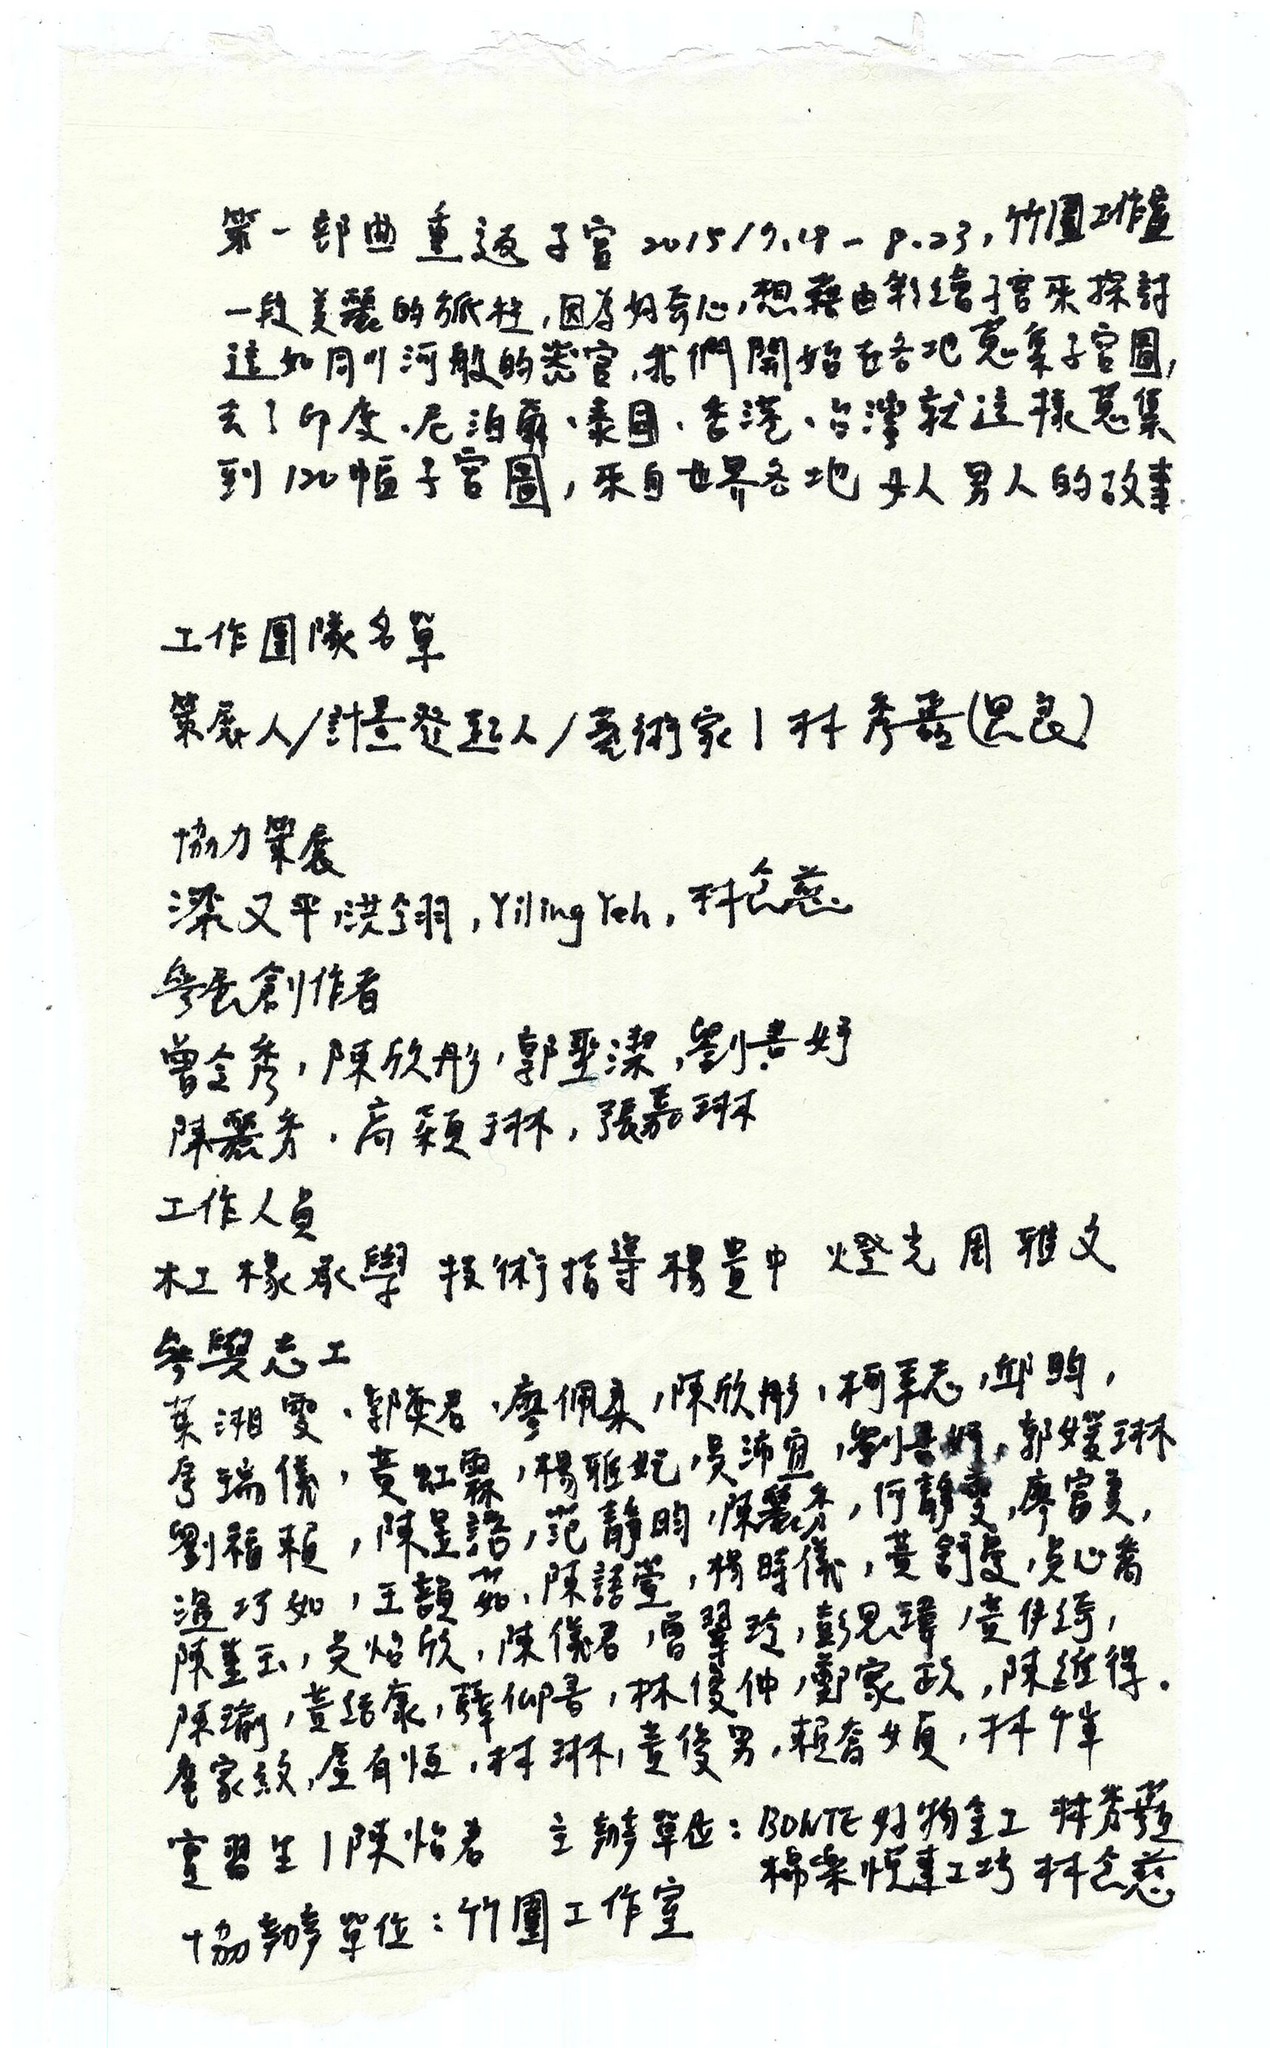 第一部曲重返子宮 2015/7.19-8.23,竹圍工作室
一段美麗的旅程,因為好奇心,想藉由彩繪子宮來探討
這如同川河般的器官,我們開始在各地蒐集子宮圖,
去了印度、尼泊爾、泰國、香港、台灣就這樣蒐集
到120幅子宮圖,來自世界各地女人男人的故事
工作團隊名單
策展人/計畫發起人/藝術家|林秀(思良)
協力策展
梁又平,洪翎翔,Yiling Yeh,林念慈
參展創作者
曾令秀,陳欣彤,郭聖潔,劉書妤
陳麗秀,高穎琳,張嘉琳
工作人員
木工 承學 技術指導楊貴中 燈光周雅文
參與志工
葉湘雯、郭奕君、廖佩柔,陳欣彤,柯,邱昀,
瑞儀,黃虹霖,楊雅妃,吳沛宜,劉書妤,郭媛琳
劉福賴,陳昱諮,范靜昀,陳麗秀,何靜雯,廖富美,
溫巧如,王韻茹,陳語萱,楊時儀,黃舒,吳心喬
陳玉,吳焰欣,陳儀君,曾翠玲,彭思瑋,黃伊綺,
陳瑜,黃康,薛仰書,林俊仲,鄭家政,陳進得.
家紋,盧有恆,林琳,黃俊男,賴春女貞,林
實習生|陳怡君 主辦單位:BONTE好物金工 林秀
棉樂悅事工坊 林念慈
協辦單位:竹圍工作室